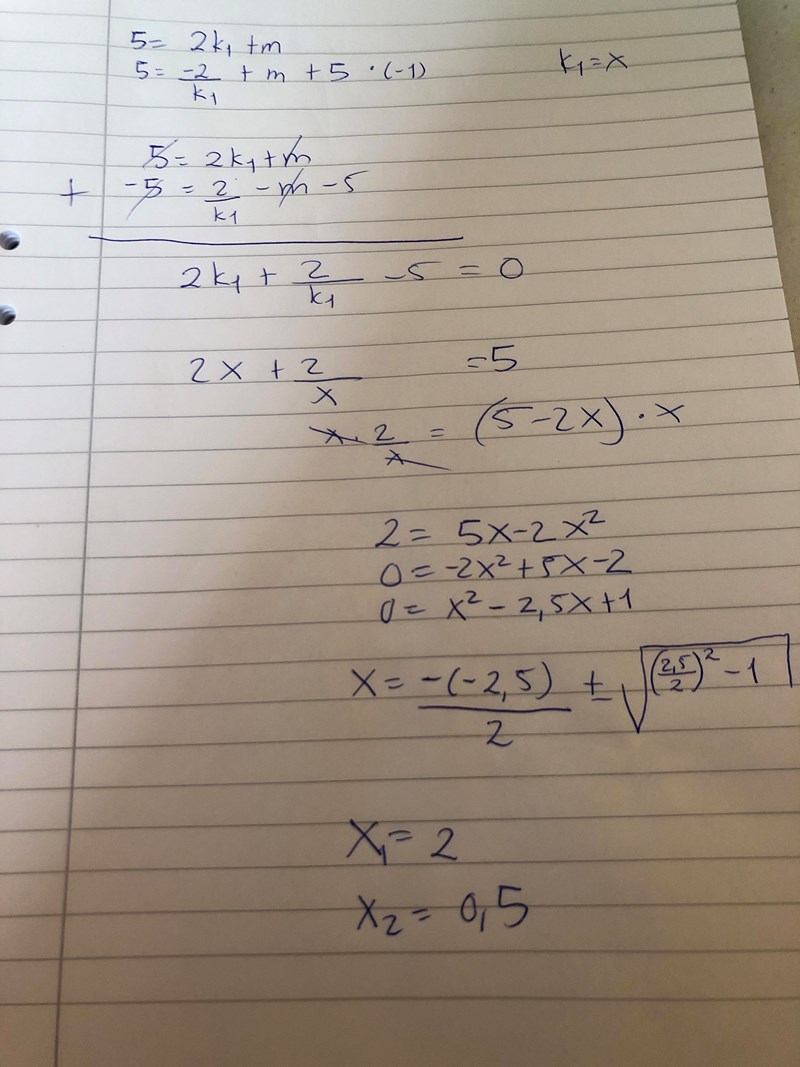 5 = 2k₁ + m
5 = -2/k₁ + m + 5 · (-1)
k₁ = x
5 = 2k₁ + m
+ -5 = 2/k₁ - m - 5
2k₁ + 2/k₁ - 5 = 0
2x + 2/x = 5
x · 2/x = (5 - 2x) · x
2 = 5x - 2x²
0 = -2x² + 5x - 2
0 = x² - 2,5x + 1
x = -(-2,5)/2 ± √((2,5/2)² - 1)
x₁ = 2
x₂ = 0,5